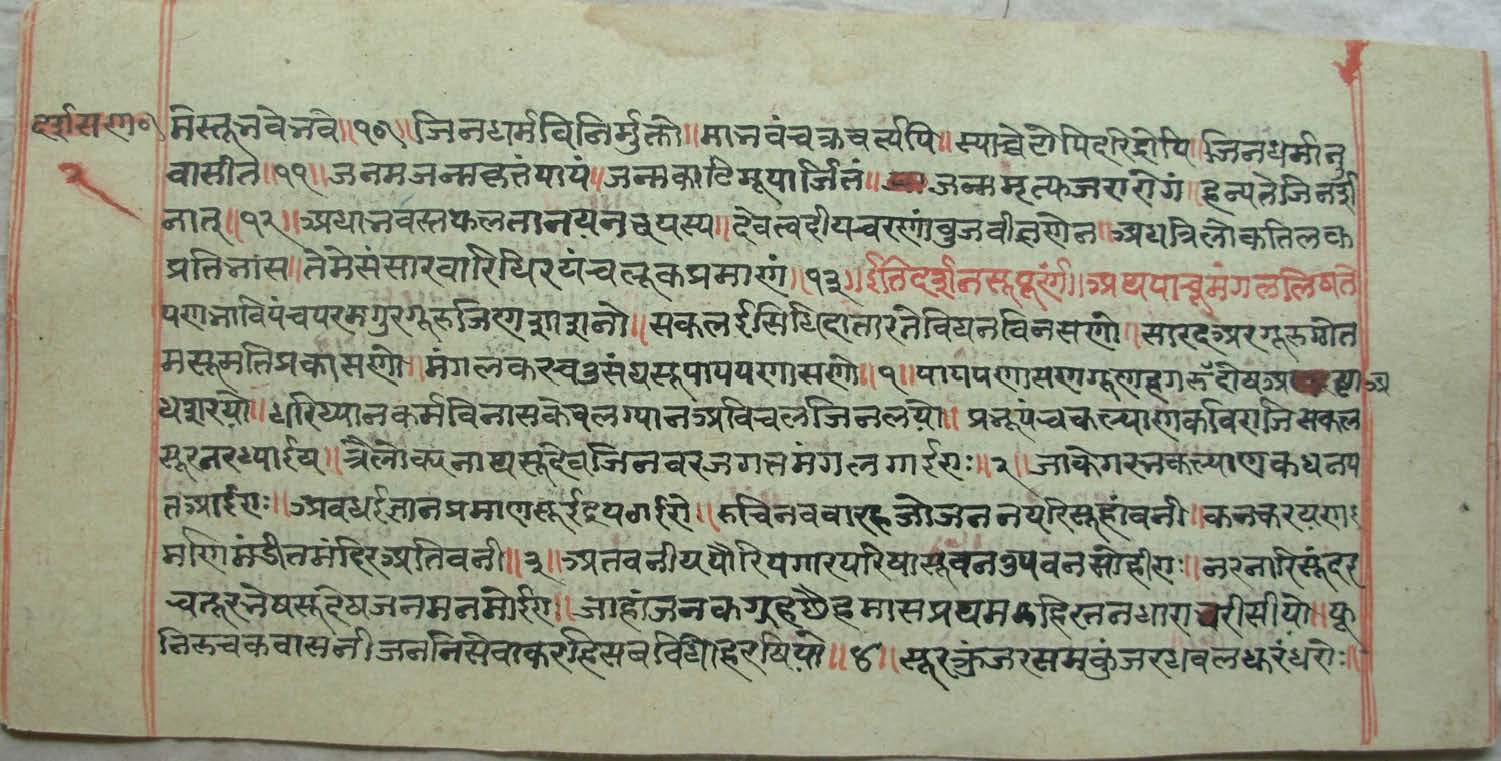 मेस्तूनवेनवे॥१०॥जिनधर्मविनिर्मुक्तो॥मानवंचक्रवर्त्यपि॥स्याच्चेटोपिदरिद्रोपि॥जिनधर्मानु
२
वासीते॥११॥जनमजन्मकृतंपापं॥जन्मकोटिमूपार्जितं॥जन्ममृत्यजरारोगं॥हन्यतेजिनदर्श
नात्॥१२॥अद्यानवस्तफलतानयनद्वयस्य॥देवत्वदीयचरणांवुजवीक्षणेन॥अद्यत्रिलोकतिलक
प्रतिनांस॥तेमेसंसारवारिधिरयंचलूकप्रमाणं॥१३॥ईतिदर्शनस्कपूर्रणं॥अथपाचूमंगललिषते
पणमाविपंचपरमगुरगूरुजिणशाशनो॥सकलईसिधिदातारतेविघनविनसणो॥सारदअरगूरूगोत
मसूमतिप्रकासणो॥मंगलकरचउसंघसूपापपणासणो॥१॥पापपणासणगूणहगरूँदोषअ
धशरयो॥धरिध्यानकर्मविनासकेवलग्यानअविचलजिनलयो॥प्रनूपंचकल्याणकविराजिसकल
सूरनरध्याईय॥त्रैलोक्यनाथसूदेवजिनवरजगतमंगलगाईए:॥२॥जाकेगरनकल्याणकधनप
तआईए:॥अवधईज्ञानप्रमाणसूईंद्रपगईये॥रुचिनववारहजोजननयरिसूहांवनी॥कनकरयण:
मणिमंडीतमंदिरअतिवनी॥३॥अतवनीयपौरियगारपरिषासूवनउपवनसोहीए:॥नरनारिसूंदर
चतूरनेषसूदेषजनमनमोईए॥जाहांजनकगृहछैहमासप्रथमहिरतनधारावरीसीयो॥फू
निरूचकवासनीजननिसेवाकरहिसवविधीहरषियो॥४॥सूरकूंजरसमकुंजरधवलधूरंधरो:॥